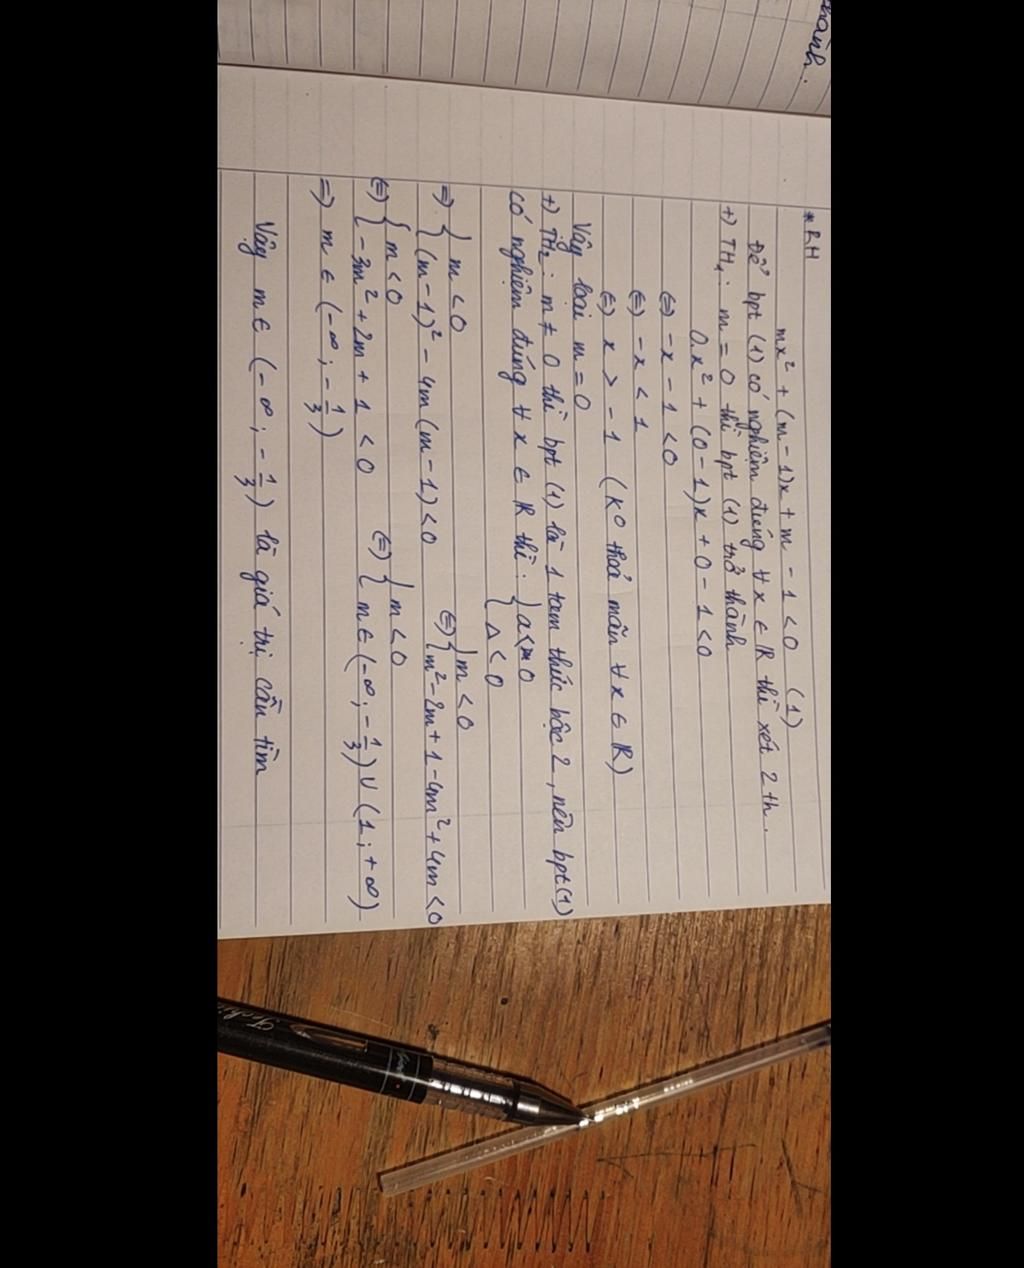 thành.
*RH
mx² + (m - 1)x + m - 1 < 0 (1)
Để bpt (1) có nghiệm đúng ∀ x ∈ R thì xét 2 th.
+) TH₁: m = 0 thì bpt (1) trở thành
0x² + (0 - 1)x + 0 - 1 < 0
⇔ -x - 1 < 0
⇔ -x < 1
⇔ x > -1 (K° thoả mãn ∀ x ∈ R)
Vậy loại m = 0
+) TH₂: m ≠ 0 thì bpt (1) là 1 tam thức bậc 2, nên bpt (1)
có nghiệm đúng ∀ x ∈ R thì: { a < 0
{ Δ < 0
⇒ { m < 0 ⇔ { m < 0
{ (m - 1)² - 4m (m - 1) < 0 { m² - 2m + 1 - 4m² + 4m < 0
⇔ { m < 0 ⇔ { m < 0
{ -3m² + 2m + 1 < 0 { m ∈ (-∞; -1/3) ∪ (1; +∞)
⇒ m ∈ (-∞; -1/3)
Vậy m ∈ (-∞; -1/3) là giá trị cần tìm